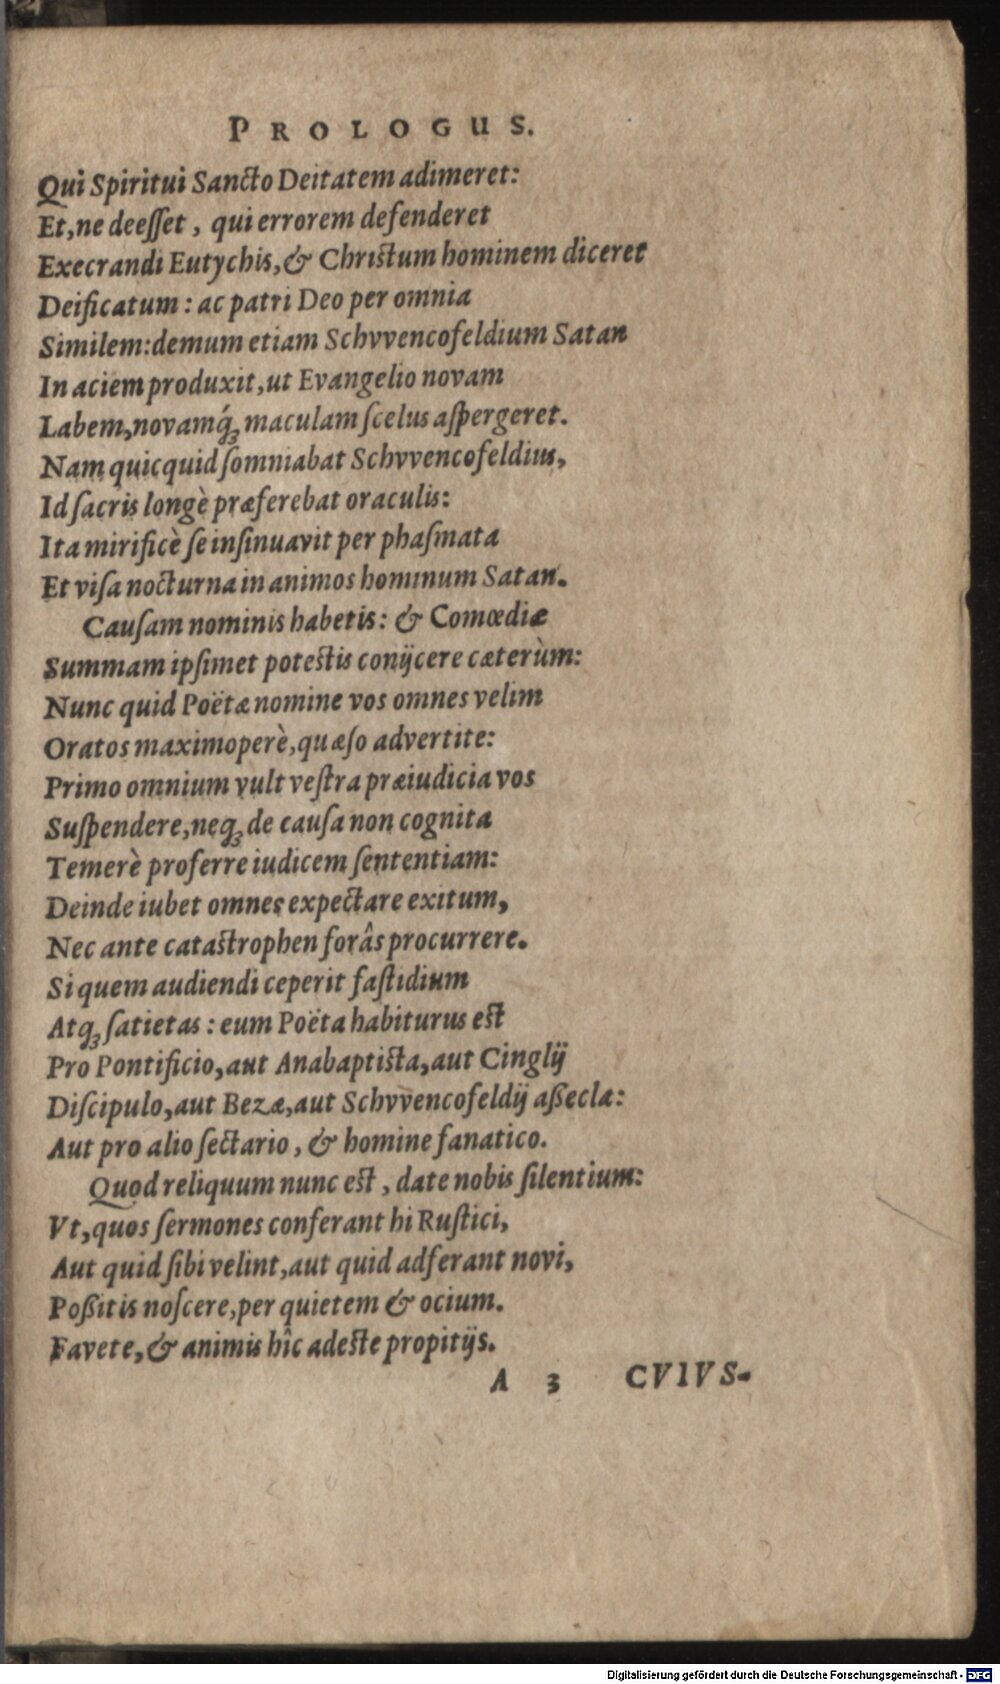 PROLOGUS.
Qui Spiritui Sancto Deitatem adimeret:
Et, ne deeſſet, qui errorem defenderet
Execrandi Eutychis, & Christum hominem diceret
Deificatum: ac patri Deo per omnia
Similem: demum etiam Schvvencofeldium Satan
In aciem produxit, ut Evangelio novam
Labem, novamq́ꝫ maculam ſcelus aſpergeret.
Nam quicquid ſomniabat Schvvencofeldius,
Id ſacris longè præferebat oraculis:
Ita mirificè ſe inſinuavit per phaſmata
Et viſa nocturna in animos hominum Satan.
Cauſam nominis habetis: & Comœdiæ
Summam ipſimet potestis conijcere cæterùm:
Nunc quid Poëtæ nomine vos omnes velim
Oratos maximoperè, quæſo advertite:
Primo omnium vult veſtra præiudicia vos
Suſpendere, neqꝫ de cauſa non cognita
Temerè proferre iudicem ſententiam:
Deinde iubet omnes expectare exitum,
Nec ante catastrophen forâs procurrere.
Si quem audiendi ceperit faſtidium
Atqꝫ ſatietas: eum Poëta habiturus est
Pro Pontificio, aut Anabaptista, aut Cinglij
Diſcipulo, aut Bezæ, aut Schvvencofeldij aßeclæ:
Aut pro alio ſectario, & homine fanatico.
Quod reliquum nunc est, date nobis ſilentium:
Vt, quos ſermones conferant hi Ruſtici,
Aut quid ſibi velint, aut quid adferant novi,
Poßitis noſcere, per quietem & ocium.
Favete, & animis hîc adeste propitijs.
A 3 CVIVS-
Digitalisierung gefördert durch die Deutsche Forschungsgemeinschaft - DFG